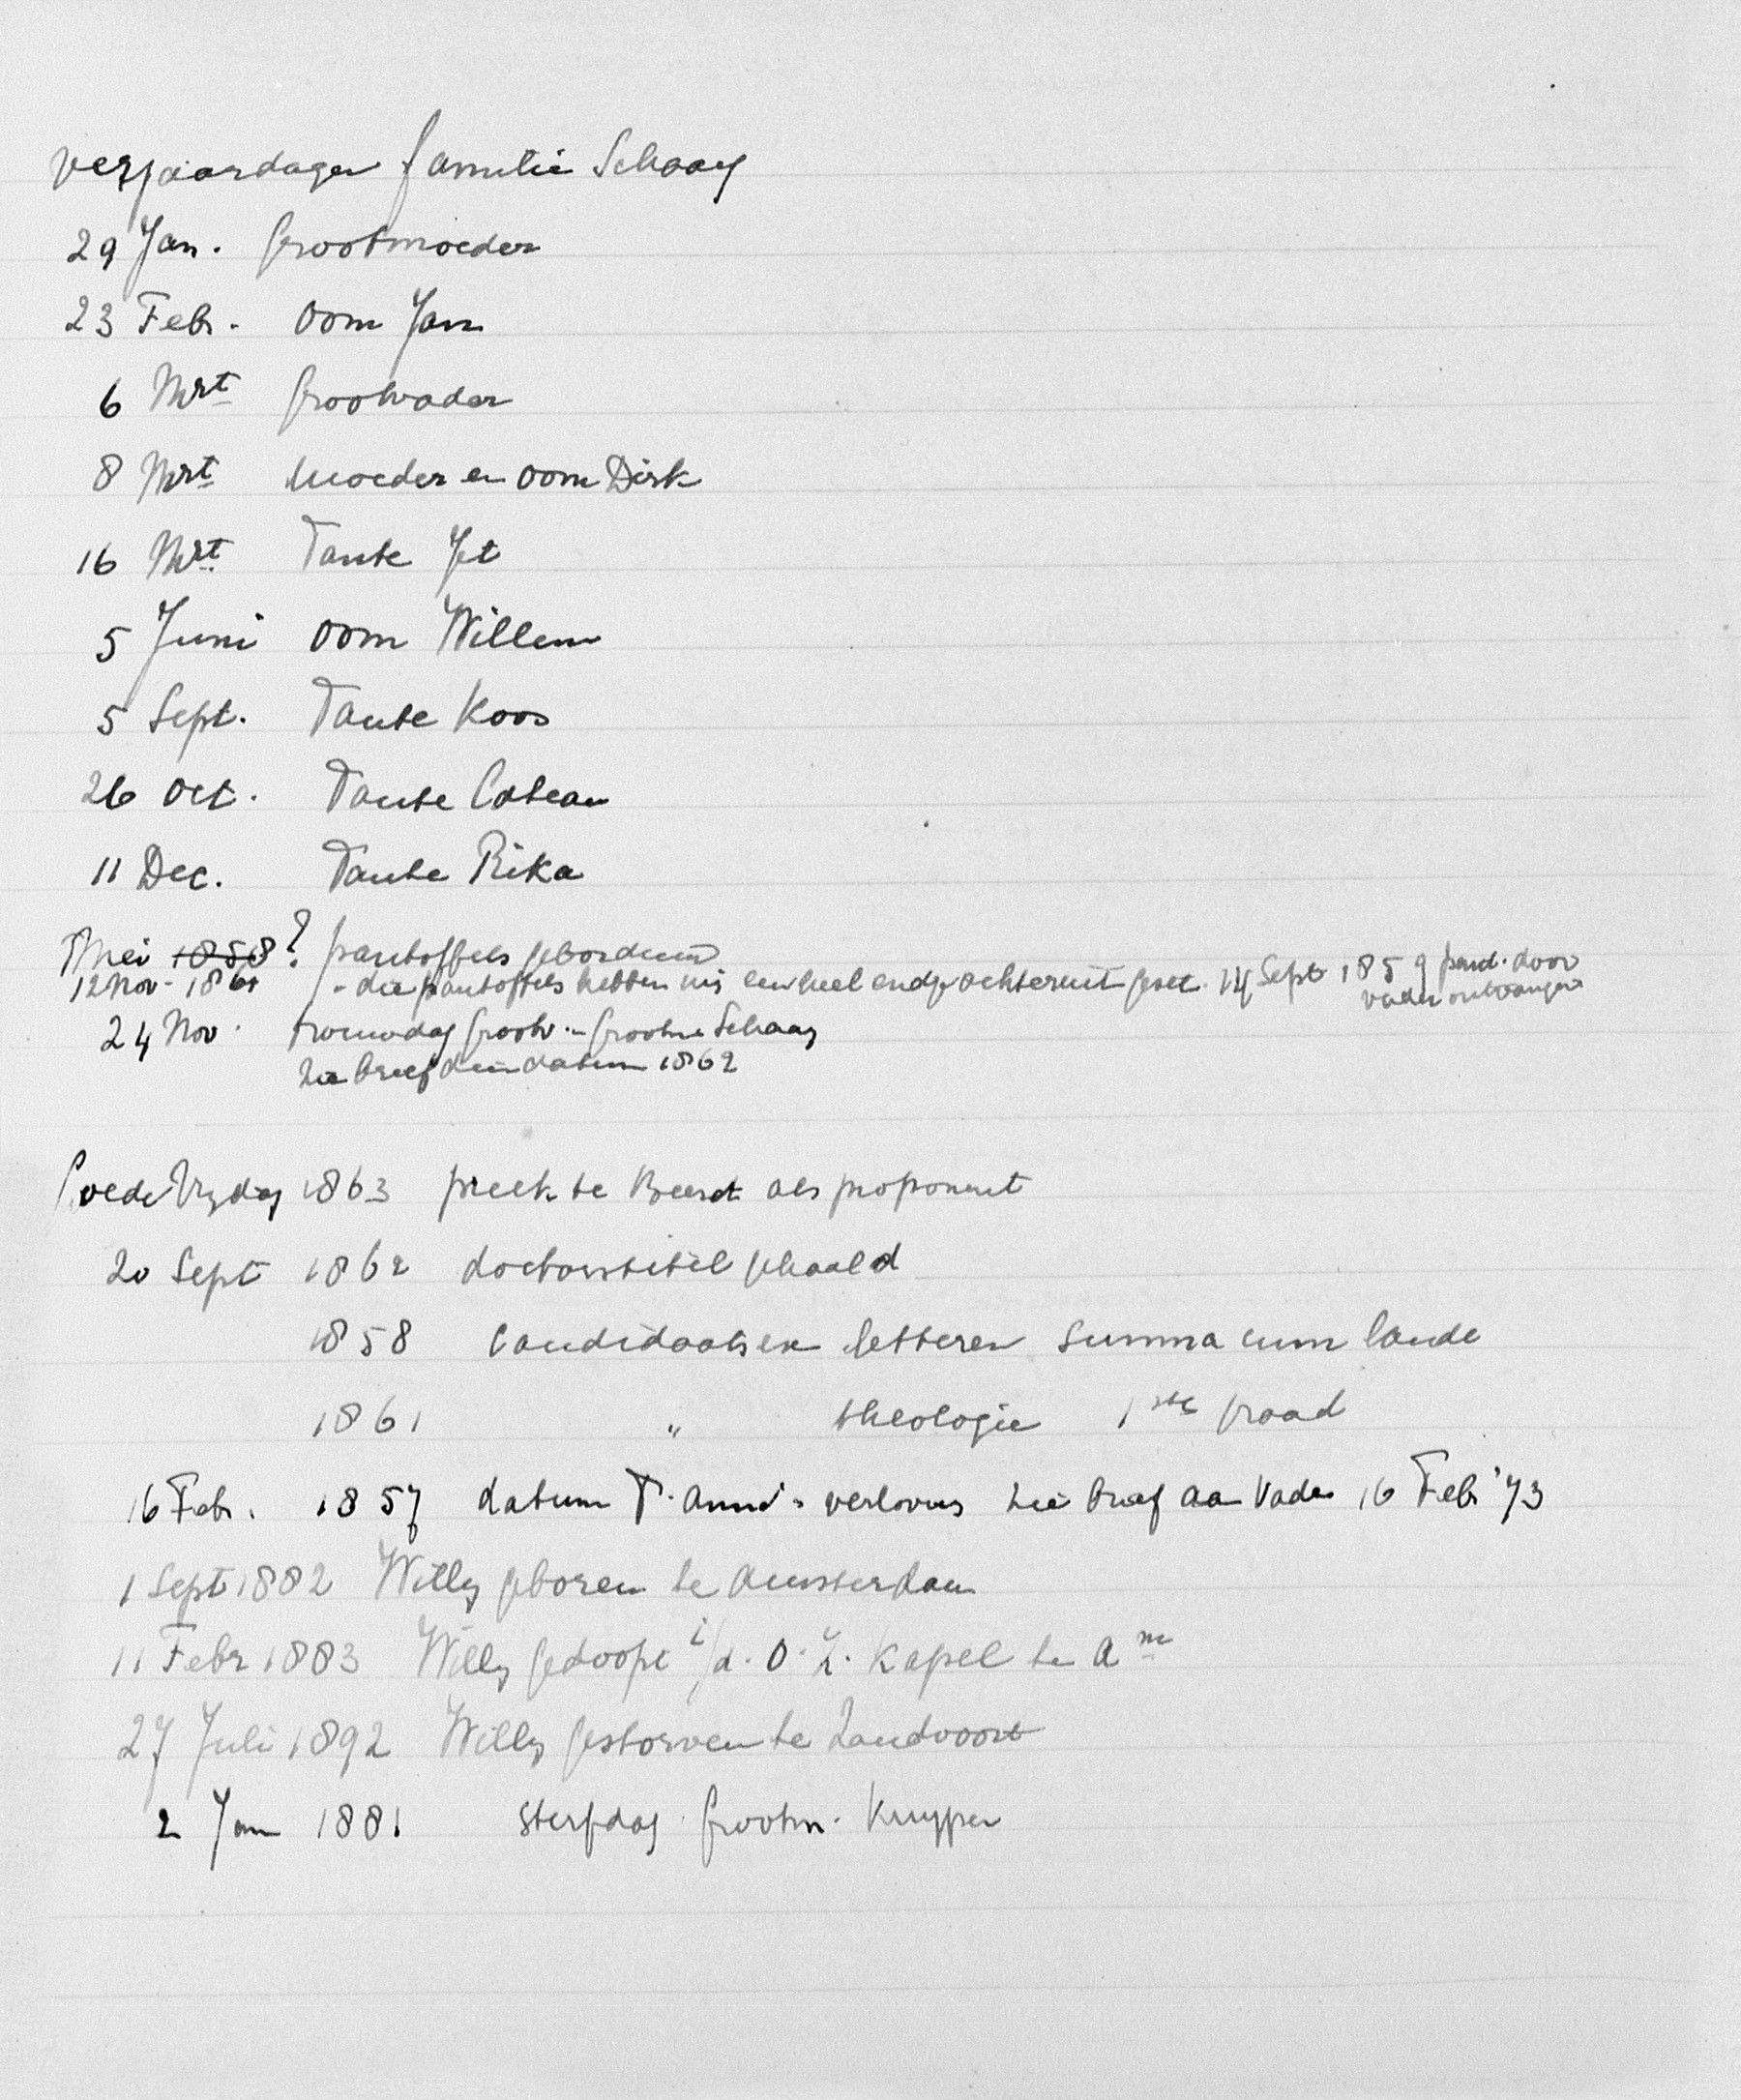 verjaardagen familie Schaay
29 Jan. Grootmoeder
23 Febr. oom Jan
6 Mrt Grootvader
8 Mrt Moeder en oom Dirk
16 Mrt Tante Jet
5 Juni oom Willem
5 Sept. Tante Koos
26 Oct. Tante Cateau
11 Dec. Tante Rika
Mei 1858? pantoffels geborduurd
12 Nov. 1861 - die pantoffels hebben mij een heel endje achteruit gezet. 14 Sept 1859 pand. door
vader ontvangen
24 Nov. trouwdag Grootv. - Grootm. Schaay
zie brief dien datum 1862
Goede Vrijdag 1863 preek te Beesd als proponent
20 Sept 1862 doctorstitel gehaald
1858 Candidaatsex letteren summa cum laude
1861 " theologie 1ste graad
16 Febr. 1857 datum T. Anna's verloving zie brief aan Vader 16 Febr '73
1 Sept 1882 Willy geboren te Amsterdam
11 Febr 1883 Willy gedoopt i/d. O. Z. Kapel te Am
27 Juli 1892 Willy gestorven te Zandvoort
2 Jan 1881 sterfdag Grootm. Kuyper